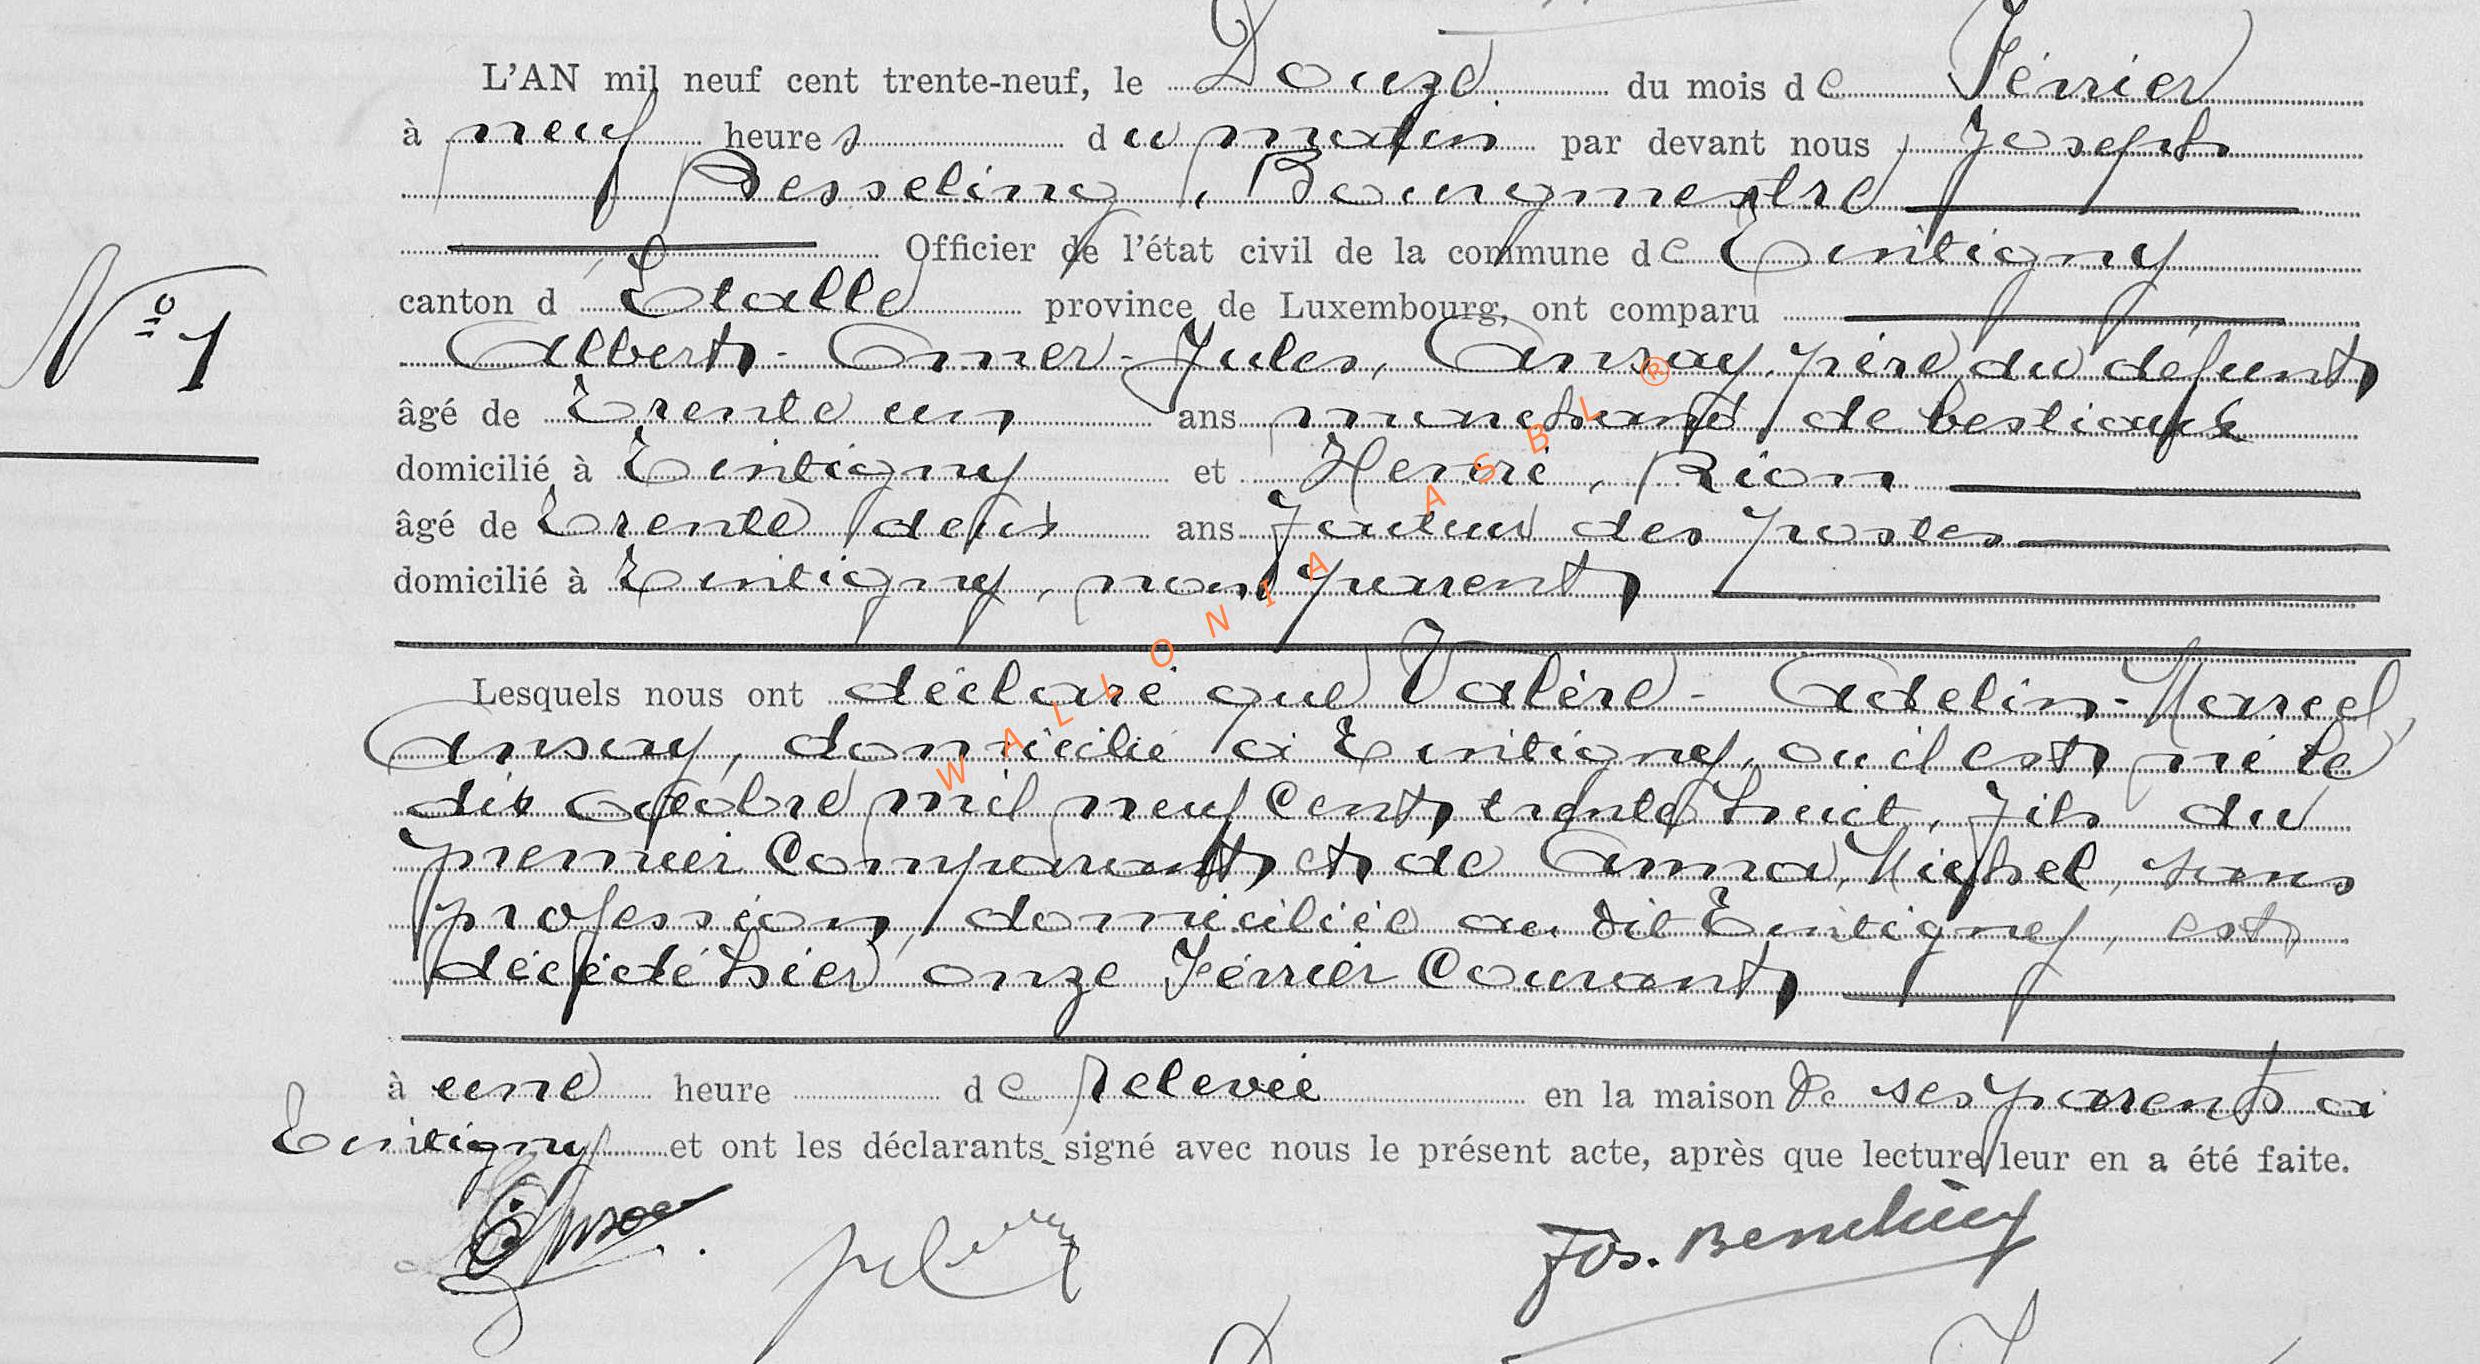 L'AN mil neuf cent trente-neuf, le Douze du mois de Février
à neuf heures du matin par devant nous Joseph
Besseling, Bourgmestre
Officier de l'état civil de la commune de Tintigny
canton d Etalle province de Luxembourg, ont comparu
N° 1
Albert-Omer-Jules, Ansay, père du défunt
âgé de Trente un ans marchand de bestiaux
domicilié à Tintigny et Henri, Rion
âgé de Trente deux ans facteur des postes
domicilié à Tintigny, non parent
Lesquels nous ont déclaré que Valère-Adelin-Marcel
Ansay, domicilié à Tintigny, où il est né le
dix octobre mil neuf cent trente huit, fils du
premier comparant et de Anna, Michel, sans
profession, domiciliée au dit Tintigny, est
décédé hier onze Février courant
à une heure de relevée en la maison de ses parents à
Tintigny et ont les déclarants signé avec nous le présent acte, après que lecture leur en a été faite.
Jos.
WALLONIA ASBL ®